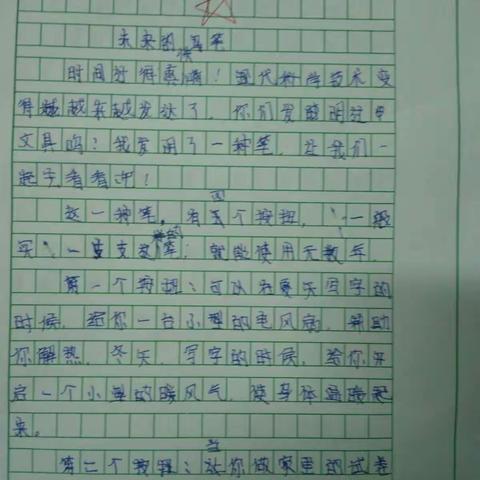 未来的笔
时间过得真快!现代科学技术变
得越越来越发达了,你们发明过
文具吗?我发明了一种笔,让我们一
起去看看吧!
这一种笔,有四个按钮,一般
买一支这样的笔,就能使用无数年。
第一个按钮:可以为夏天写字的
时候,给你一台小型的电风扇,帮助
你解热,冬天,写字的时候,给你开
启一个小型的暖风气,使身体温暖起
来。
第二个按钮:当你做家里的试卷